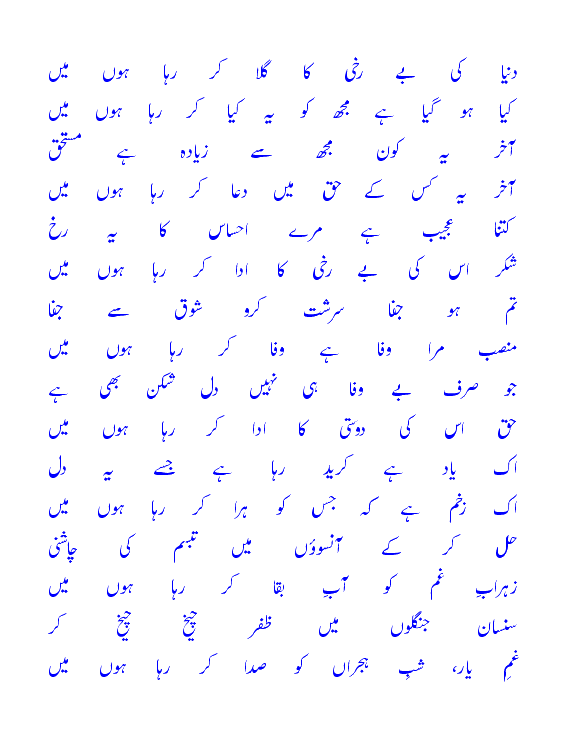 دنیا کی بے رخی کا گلا کر رہا ہوں میں
کیا ہو گیا ہے مجھ کو یہ کیا کر رہا ہوں میں
آخر یہ کون مجھ سے زیادہ ہے مستحق
آخر یہ کس کے حق میں دعا کر رہا ہوں میں
کتنا عجیب ہے مرے احساس کا یہ رخ
شکر اس کی بے رخی کا ادا کر رہا ہوں میں
تم ہو جفا سرشت کرو شوق سے جفا
منصب مرا وفا ہے وفا کر رہا ہوں میں
جو صرف بے وفا ہی نہیں دل شکن بھی ہے
حق اس کی دوستی کا ادا کر رہا ہوں میں
اک یاد ہے کرید رہا ہے جسے یہ دل
اک زخم ہے کہ جس کو ہرا کر رہا ہوں میں
حل کر کے آنسوؤں میں تبسم کی چاشنی
زہرابِ غم کو آبِ بقا کر رہا ہوں میں
سنسان جنگلوں میں ظفر چیخ چیخ کر
غمِ یار، شبِ ہجراں کو صدا کر رہا ہوں میں